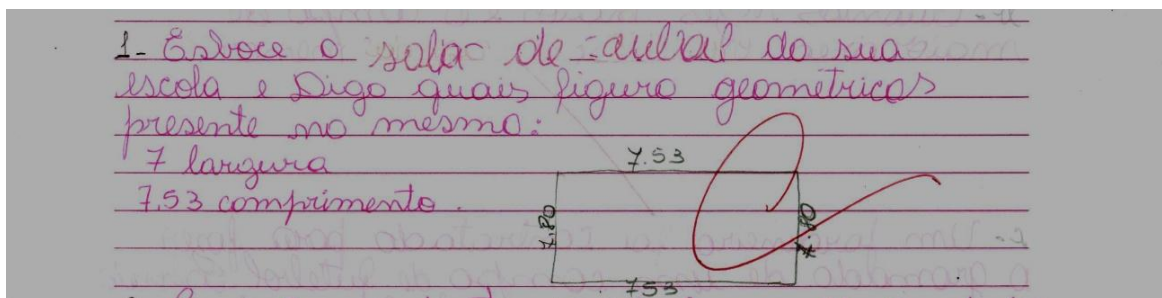 1- Esboce o sala de aula da sua
escola e Diga quais figura geométricas
presente no mesmo:
7 largura
7.53 comprimento.
7.53
7.80
7.80
753